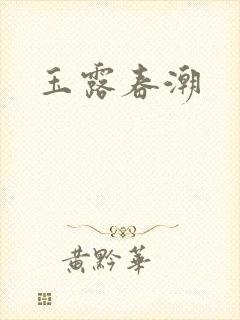 玉露春潮
黄黔华